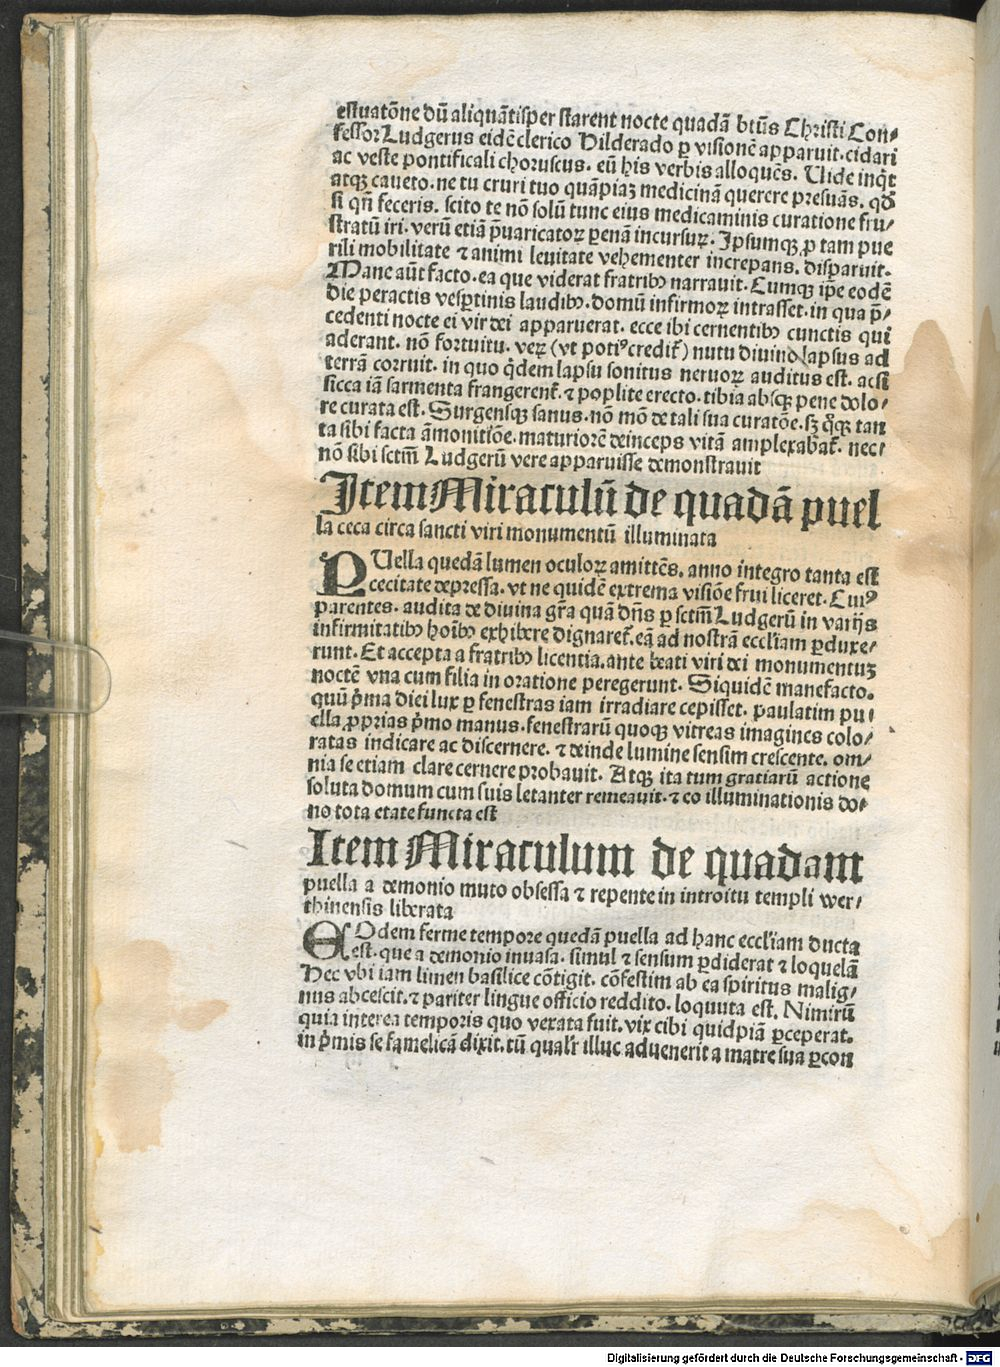 estuatõne dũ aliquãtisper starent nocte quadã btũs Christi Con⸗
fessor Ludgerus eidẽ clerico Hilderado ꝑ visionẽ apparuit. cidari
ac veste pontificali choruscus. eũ his verbis alloquẽs. Uide inq̃t
atqꝫ caueto. ne tu cruri tuo quãpiaꝫ medicinã querere presuãs. qď
si qñ feceris. scito te nõ solũ tunc eius medicaminis curatione fru⸗
stratũ iri. verũ etiã p̃uaricatoꝝ penã incursuꝝ. Ipsumqꝫ ꝓ tam pue
rili mobilitate ⁊ animi leuitate vehementer increpans. disparuit.
Mane aũt facto. ea que viderat fratribꝰ narrauit. Cumqꝫ ip̃e eodẽ
die peractis vesꝑtinis laudibꝰ. domũ infirmoꝝ intrasset. in qua p̃⸗
cedenti nocte ei vir dei apparuerat. ecce ibi cernentibꝰ cunctis qui
aderant. nõ fortuitu. veꝝ (vt potiꝰ credit̃) nutu diuino lapsus ad
terrã corruit. in quo q̃dem lapsu sonitus neruoꝝ auditus est. acsi
sicca iã sarmenta frangerent̃. ⁊ poplite erecto. tibia absqꝫ pene dolo⸗
re curata est. Surgensqꝫ sanus. nõ mõ de tali sua curatõe. sꝫ q̃qꝫ tan
ta sibi facta ãmonitiõe. maturiorẽ deinceps vitã amplexabat̃. nec⸗
nõ sibi sctm̃ Ludgerũ vere apparuisse demonstrauit
Item Miraculũ de quadã puel
la ceca circa sancti viri monumentũ illuminata
PUella quedã lumen oculoꝝ amittẽs. anno integro tanta est
cecitate depressa. vt ne quidẽ extrema visiõe frui liceret. Cuiꝰ
parentes. audita de diuina gr̃a quã dñs ꝑ sctm̃ Ludgerũ in varijs
infirmitatibꝰ hoĩbꝰ exhibere dignaret̃. eã ad nostrã eccl'iam ꝑduxe⸗
runt. Et accepta a fratribꝰ licentia. ante beati viri dei monumentuꝫ
noctẽ vna cum filia in oratione peregerunt. Siquidẽ manefacto.
quũ p̃ma diei lux ꝑ fenestras iam irradiare cepisset. paulatim pu⸗
ella ꝓprias p̃mo manus. fenestrarũ quoqꝫ vitreas imagines colo⸗
ratas indicare ac discernere. ⁊ deinde lumine sensim crescente. om⸗
nia se etiam clare cernere probauit. Atqꝫ ita tum gratiarũ actione
soluta domum cum suis letanter remeauit. ⁊ eo illuminationis do⸗
no tota etate functa est
Item Miraculum de quadam
puella a demonio muto obsessa ⁊ repente in introitu templi wer⸗
thinensis liberata
EOdem ferme tempore quedã puella ad hanc eccl'iam ducta
est. que a demonio inuasa. simul ⁊ sensum ꝑdiderat ⁊ loquelã
Hec vbi iam limen basilice cõtigit. cõfestim ab ea spiritus malig⸗
nus abcescit. ⁊ pariter lingue officio reddito. loquuta est. Nimirũ
quia interea temporis quo vexata fuit. vix cibi quidpiã ꝑceperat.
in p̃mis se famelicã dixit. tũ qual'r illuc aduenerit a matre sua ꝑcon
Digitalisierung gefördert durch die Deutsche Forschungsgemeinschaft - DFG